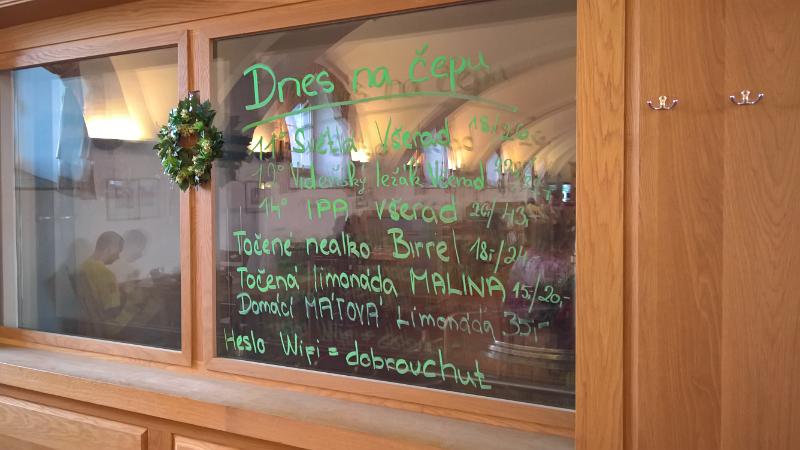 Dnes na čepu
11° Světlá Všerad 18,-/
12° Vídeňský ležák Všerad
14° IPA Všerad 26,-/43,-
Točené nealko Birrel 18,-/24,-
Točená limonáda MALINA 15,-/20,-
Domácí MÁTOVÁ Limonáda 35,-
Heslo Wifi = dobrouchut